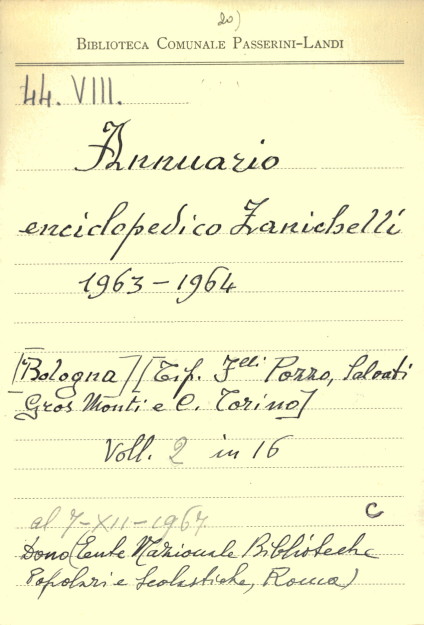 20)
BIBLIOTECA COMUNALE PASSERINI-LANDI
44. VIII.
Annuario
enciclopedico Zanichelli
1963-1964
[Bologna] [Tip. F.lli Pozzo, Salvati
Gros Monti e C. Torino]
Voll. 2 in 16
C
al 7-XII-1967
Dono (Ente Nazionale Biblioteche
Popolari e Scolastiche, Roma)